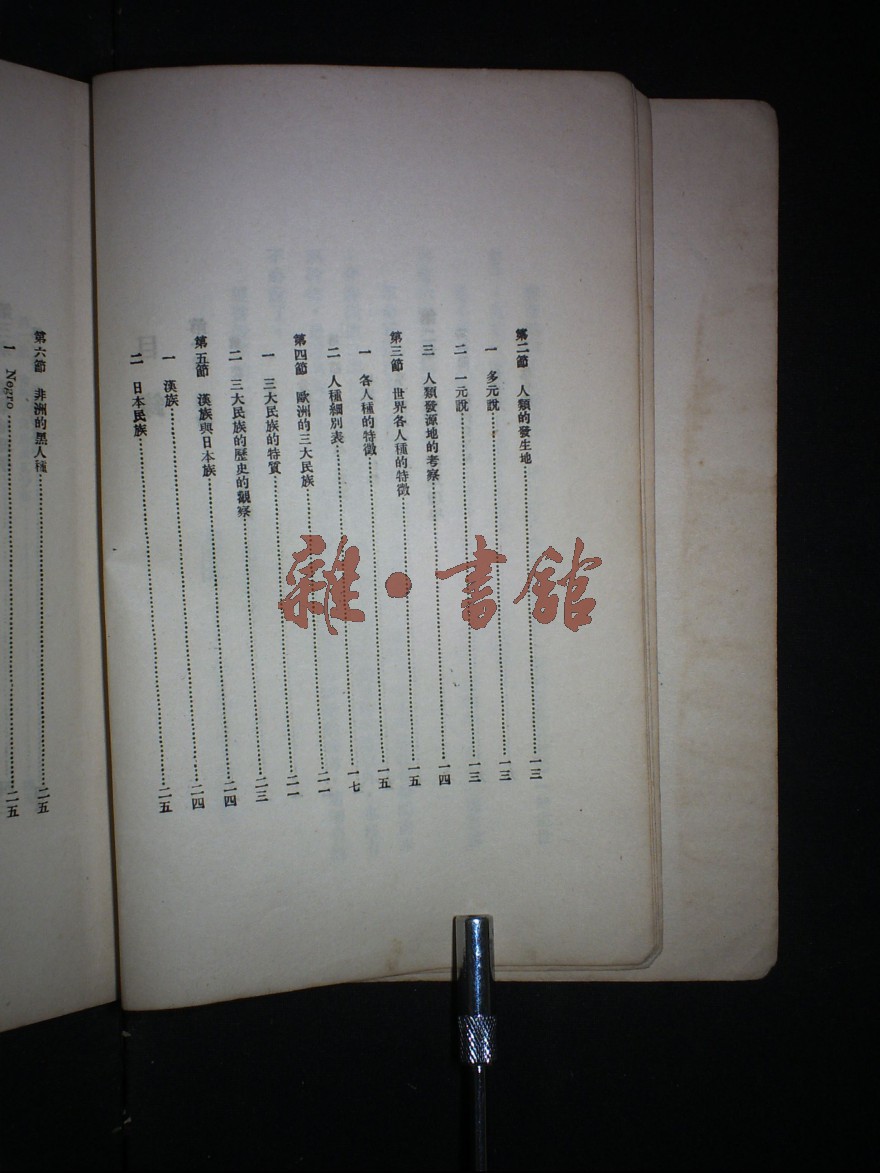 第二節 人類的發生地……一三
一 多元說……一三
二 一元說……一三
三 人類發源地的考察……一四
第三節 世界各人種的特徵……一五
一 各人種的特徵……一五
二 人種細別表……一七
第四節 歐洲的三大民族……二一
一 三大民族的特質……二一
二 三大民族的歷史的觀察……二三
第五節 漢族與日本族……二四
一 漢族……二四
二 日本民族……二五
第六節 非洲的黑人種……二五
1 Negro……二五
雜·書館